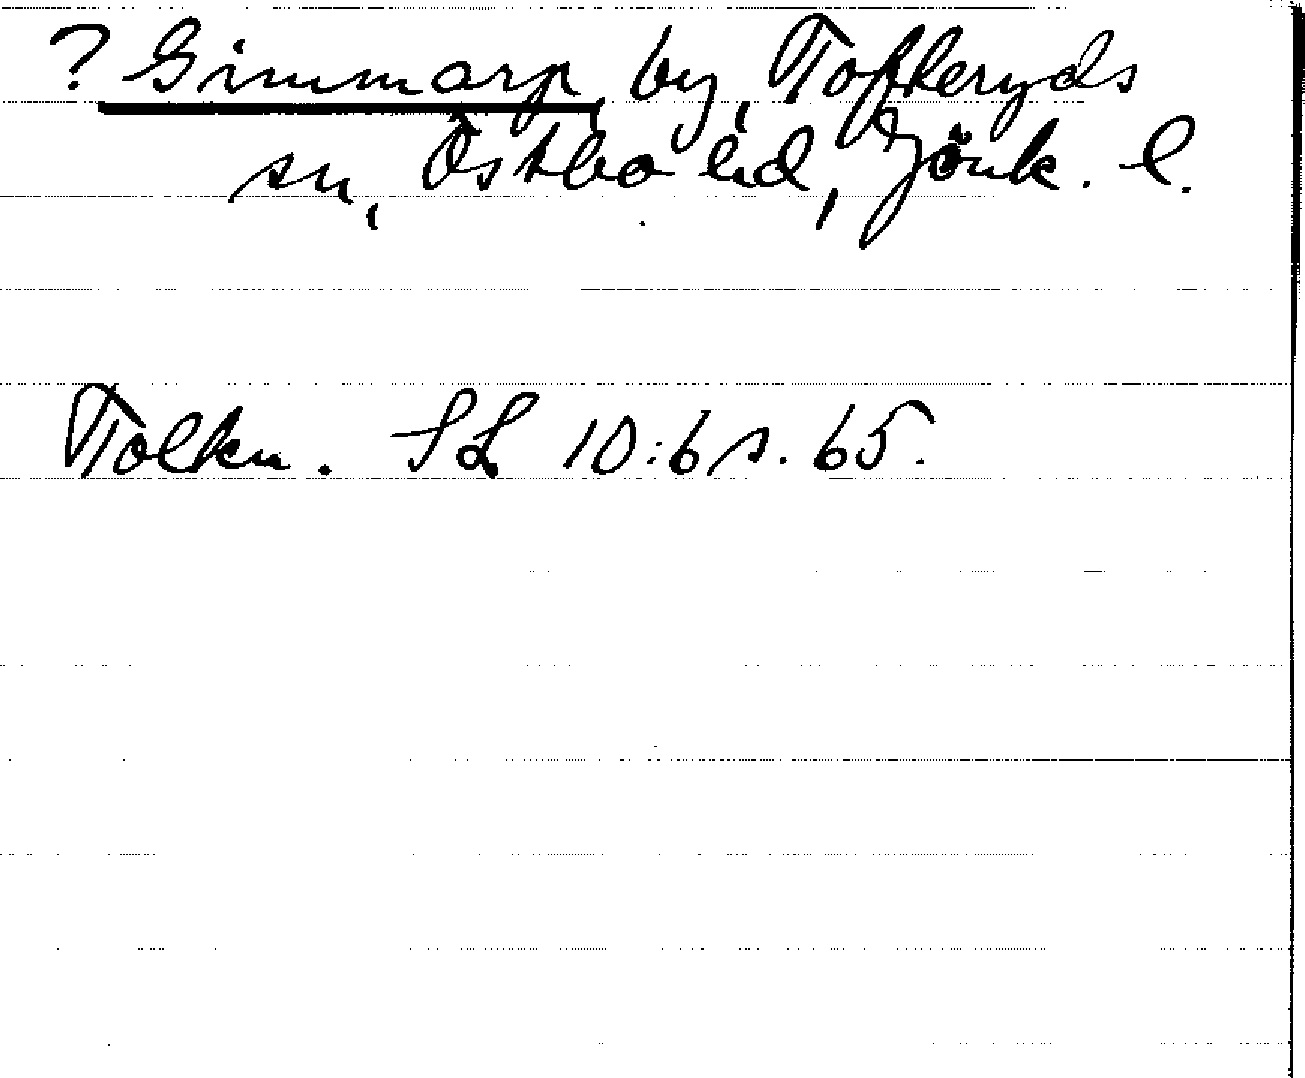 ? Gimmarp, by, Tofteryds
sn, Östbo hd, Jönk. l.
Tolkn. SL 10:6 s. 65.